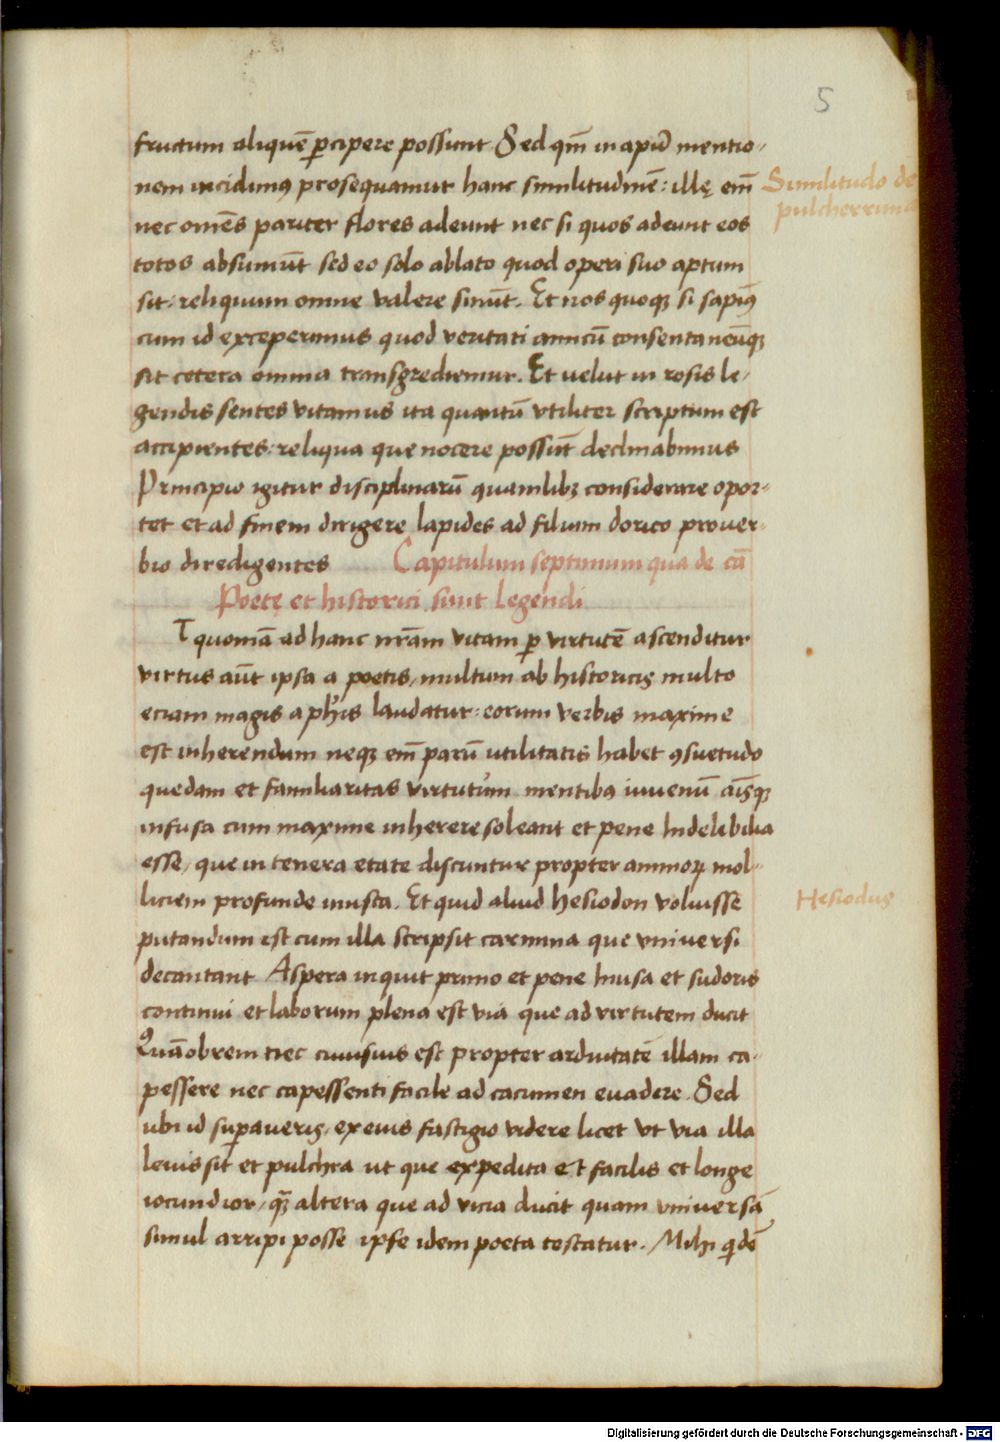 5
fructum aliquē ꝑcipere possunt. Sed qm̄ in apiū mentio-
nem incidimꝰ prosequamur hanc similitudinē: illę em̄
Similitudo de
pulcherrima
nec omēs pariter flores adeunt nec si quos adeunt eos
totos absumūt sed eo solo ablato quod operi suo aptum
sit: reliquum omne valere sinūt. Et nos quoqꝫ si sapimꝰ
cum id exceperimus quod veritati amicū consentaneūqꝫ
sit cetera omnia transgrediemur. Et uelut in rosis le-
gendis sentes vitamus ita quantū vtiliter scriptum est
accipientes: reliqua que nocere possūt declinabimus
Principio igitur disciplinarū quamlibꝫ considerare opor-
tet et ad finem dirigere lapides ad filum dorico prouer-
bio diredigentes Capitulum septimum qua de cā
Poetę et historici sunt legendi
T quoniā ad hanc nr̄am vitam ꝑ virtutē ascenditur
virtus aūt ipsa a poetis, multum ab historicis multo
eciam magis a ph̄is laudatur: eorum verbis maxime
est inherendum neqꝫ em̄ parū utilitatis habet ꝯsuetudo
quedam et familiaritas virtutum mentibꝰ iuvenū aīsqꝫ
infusa cum maxime inherere soleant et pene Indelibilia
esse, que in tenera etate discuntur propter animoꝝ mol-
liciem profunde inusta. Et quid aliud hesiodon voluisse
Hesiodus
putandum est cum illa scripsit carmina que vniuersi
decantant Aspera inquit primo et pene Inuia et sudoris
continui et laborum plena est via que ad virtutem ducit
Quāobrem nec cuiusuis est propter arduitatē illam ca-
pessere nec capessenti facile ad cacumen euadere. Sed
ubi id suꝑaueris, ex eius fastigio videre licet vt via illa
leuis sit et pulchra ut que expedita et facilis et longe
iocundior, qꝫ altera que ad vicia ducit quam vniuersā
simul arripi posse ipse idem poeta testatur. Mihi qͥdē
Digitalisierung gefördert durch die Deutsche Forschungsgemeinschaft - DFG